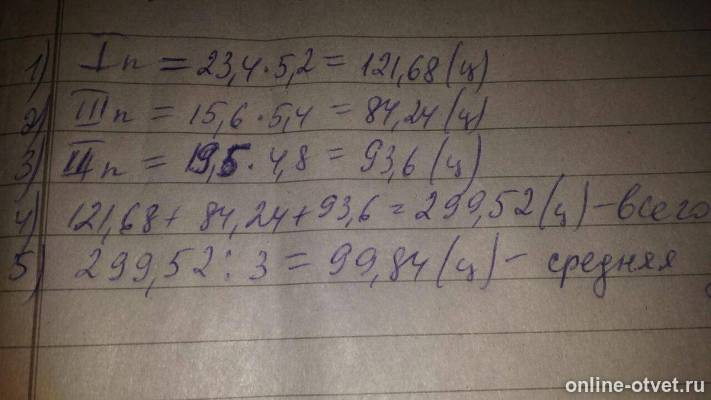 1) I п = 23,4 · 5,2 = 121,68 (ц)
2) III п = 15,6 · 5,4 = 84,24 (ц)
3) II п = 19,5 · 4,8 = 93,6 (ц)
4) 121,68 + 84,24 + 93,6 = 299,52 (ц) – всего
5) 299,52 : 3 = 99,84 (ц) – средняя
online-otvet.ru